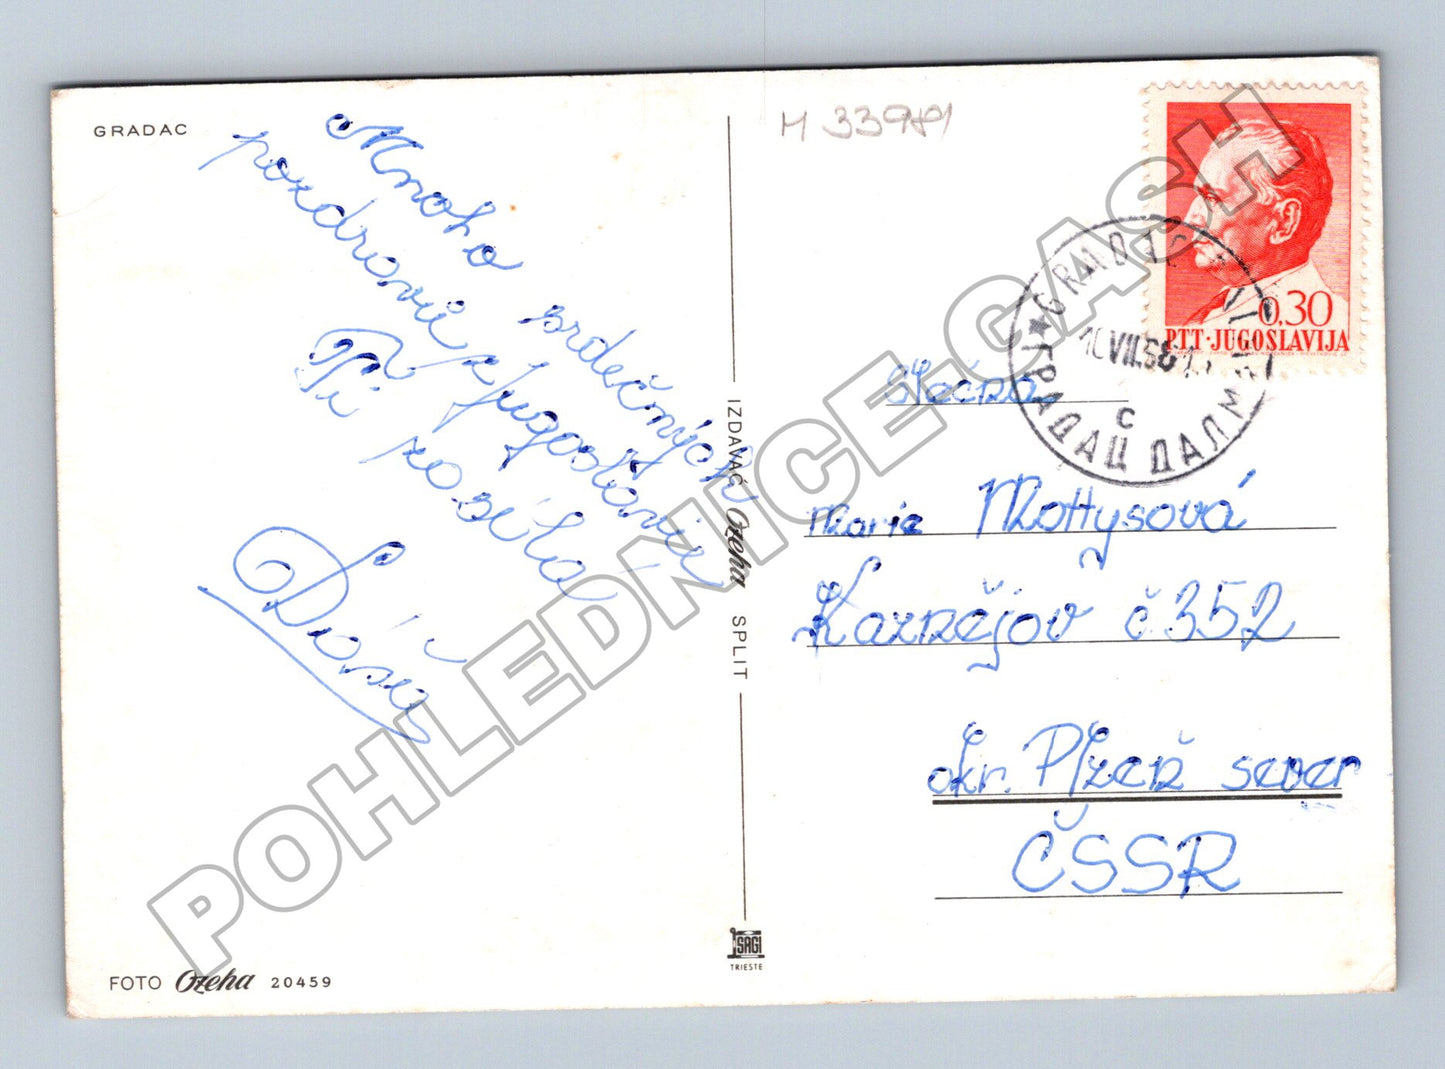 GRADAC
M 33981
Mnoho srdečných
pozdravů z Jugoslávie
Ti posílá
Dáša
IZDAVAČ Ozeha SPLIT
0,30
PTT·JUGOSLAVIJA
GRADAC
VIII.68
C
ГРАДАЦ ДАЛМ
Slečna
Marie Mottysová
Kaznějov č 352
okr. Plzeň sever
ČSSR
SAGI
TRIESTE
FOTO Ozeha 20459
POHLEDNICE.CASH